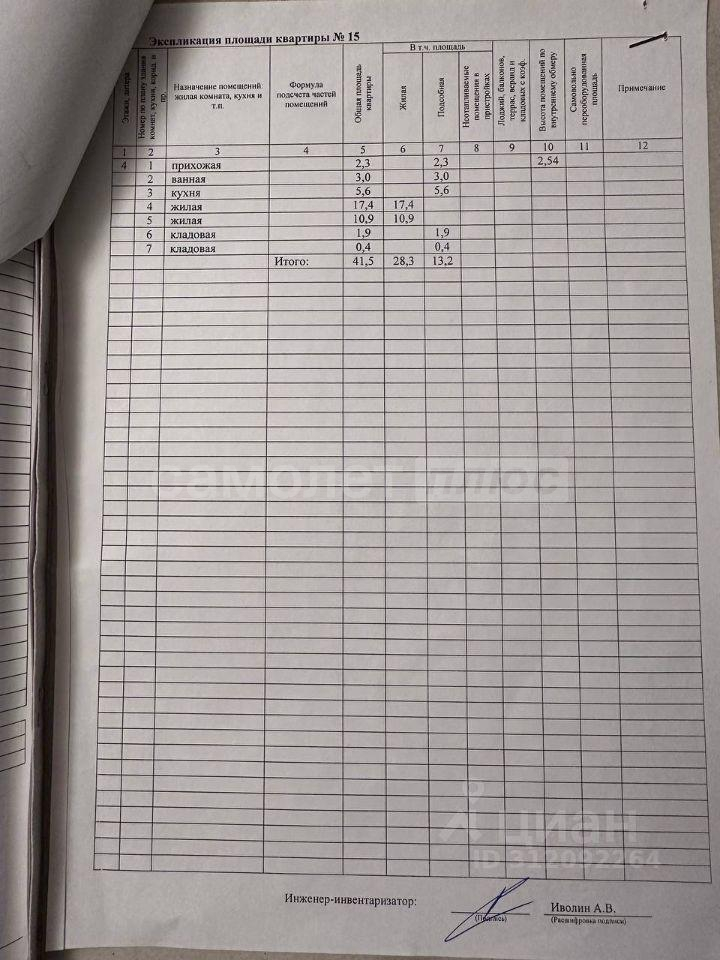 Экспликация площади квартиры № 15
Этажи, литера
Номер по плану здания комнат, кухни, корид. и пр.
Назначение помещений: жилая комната, кухня и т.п.
Формула подсчета частей помещений
Общая площадь квартиры
В т.ч. площадь
Жилая
Подсобная
Неотапливаемые помещения в пристройках
Лоджий, балконов, террас, веранд и кладовых с коэф.
Высота помещений по внутреннему обмеру
Самовольно переоборудованная площадь
Примечание
1 2 3 4 5 6 7 8 9 10 11 12
4 1 прихожая 2,3 2,3 2,54
2 ванная 3,0 3,0
3 кухня 5,6 5,6
4 жилая 17,4 17,4
5 жилая 10,9 10,9
6 кладовая 1,9 1,9
7 кладовая 0,4 0,4
Итого: 41,5 28,3 13,2
самолет плюс
циан
ID 312092264
Инженер-инвентаризатор:
(Подпись)
Иволин А.В.
(Расшифровка подписи)